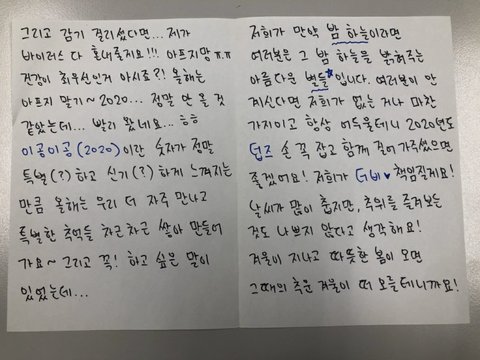 그리고 감기 걸리셨다면... 제가
바이러스 다 혼내줄지요!!! 아프지망 ㅠ.ㅠ
건강이 최우선인거 아시죠?! 올해는
아프지 말기~ 2020... 정말 안 올 것
같았는데... 빨리 왔네요... ㅎㅎ
이공이공(2020)이란 숫자가 정말
특별(?)하고 신기(?)하게 느껴지는
만큼 올해는 우리 더 자주 만나고
특별한 추억들 차근차근 쌓아 만들어
가요~ 그리고 꼭! 하고 싶은 말이
있었는데...
저희가 만약 밤 하늘이라면
여러분은 그 밤 하늘을 밝혀주는
아름다운 별들★입니다. 여러분이 안
계신다면 저희가 없는 거나 마찬
가지이고 항상 어두울테니 2020년도
덥즈 손 꼭 잡고 함께 걸어가주셨으면
좋겠어요! 저희가 더비♥ 책임질게요!
날씨가 많이 춥지만, 추위를 즐겨보는
것도 나쁘지 않다고 생각해요!
겨울이 지나고 따뜻한 봄이 오면
그때의 추운 겨울이 떠오를테니까요!